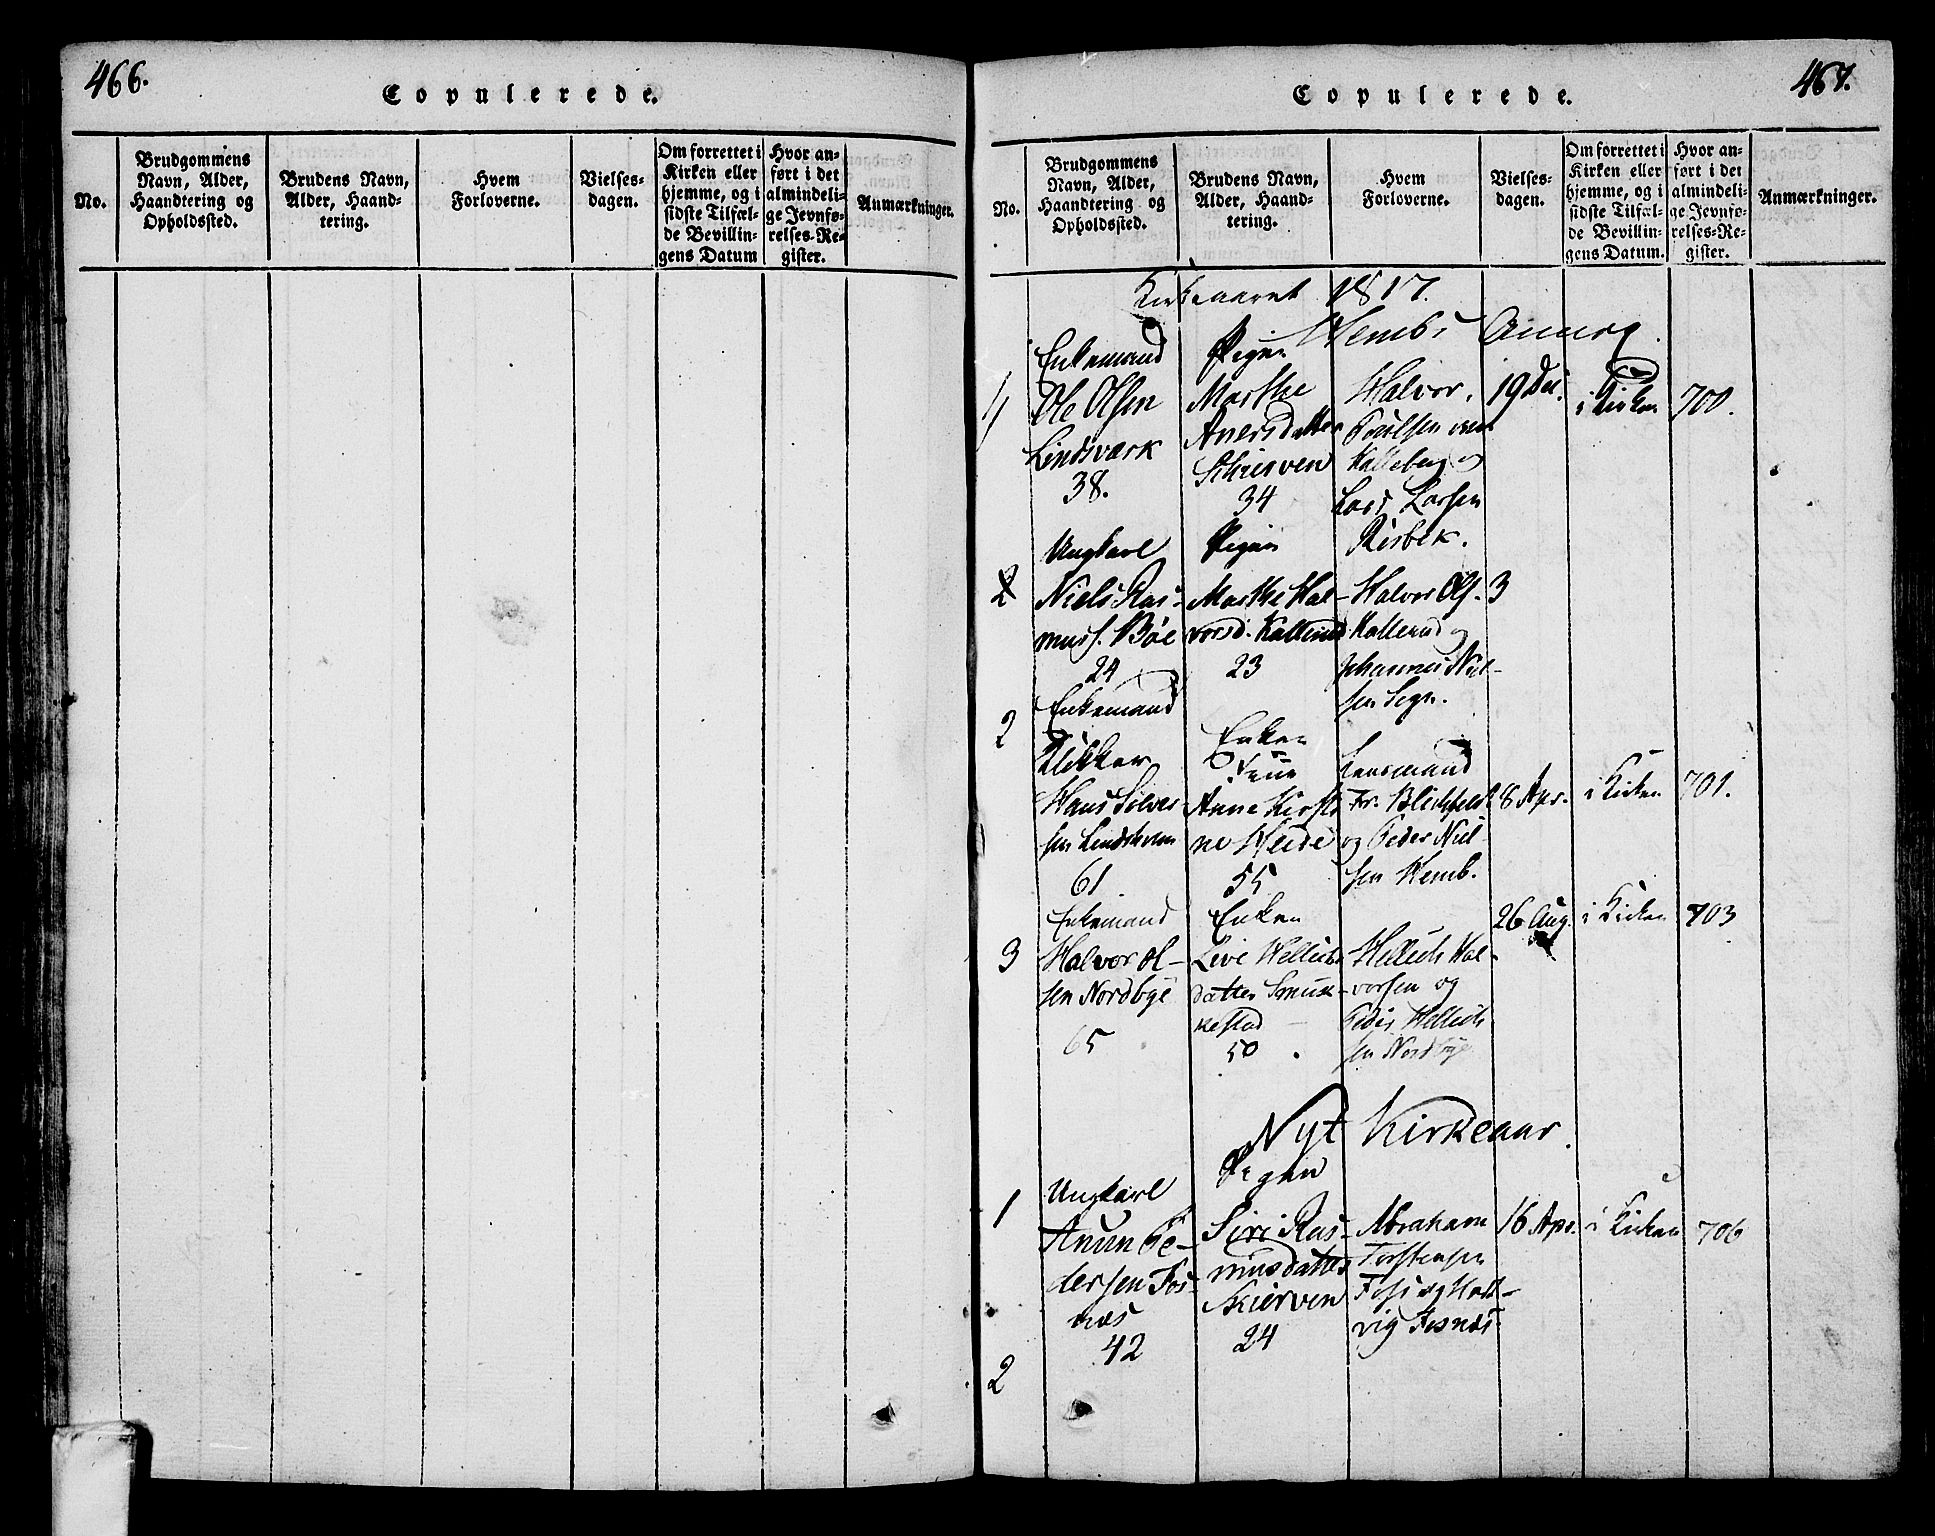 466.
Copulerede.
No.
Brudgommens
Navn, Alder,
Haandtering og
Opholdssted.
Brudens Navn,
Alder, Haand-
tering.
Hvem
Forloverne.
Vielses-
dagen.
Om forrettet i
Kirken eller
hjemme, og i
sidste Tilfæl-
de Bevillin-
gens Datum
Hvor an-
ført i det
almindeli-
ge Jevnfø-
relses-Re-
gister.
Anmærkninger.
467.
Copulerede.
No.
Brudgommens
Navn, Alder,
Haandtering og
Opholdssted.
Brudens Navn,
Alder, Haand-
tering.
Hvem
Forloverne.
Vielses-
dagen.
Om forrettet i
Kirken eller
hjemme, og i
sidste Tilfæl-
de Bevillin-
gens Datum.
Hvor an-
ført i det
almindeli-
ge Jevnfø-
relses-Re-
gister.
Anmærkninger.
Kirkeaaret 1817.
Hembs Annex.
1
Enkemand
Ole Olsen
Lindsværk
38.
Pigen
Marthe
Anersdatter
Schierven
34
Halvor
Poulsen
Kalleberg og
Lars Larsen
Risbek.
19 Dec.
i Kirken
700.
2
Ungkarl
Niels Ras-
muss. Bøe
24
Pigen
Marthe Hal-
vorsd. Kallerud
23
Halvor Ols.
Kallerud og
Johannes Niel-
sen
3
2
Enkemand
Klokker
Hans
sen
61
Enken
Anne Kirsti-
ne Heide
55
Lensmand
Fr. Blichfeldt
og Peder Niel-
sen Hemb.
8 Apr.
i Kirken
701.
3
Enkemand
Halvor Ol-
sen Nordbye
65
Enken
Live Hellichs
datter
50
Hellich Hal-
vorsen og
Peder Hellich
sen Nordbye
26 Aug.
i Kirken
703
Nyt Kirkeaar.
1
Ungkarl
Anun Pe-
dersen Fos-
næs
42
Pigen
Siri Ras-
musdatter
Skierven
24
Abraham
Torstensen
Foss og
vig Fosnæs
16 Apr.
i Kirken
706
2